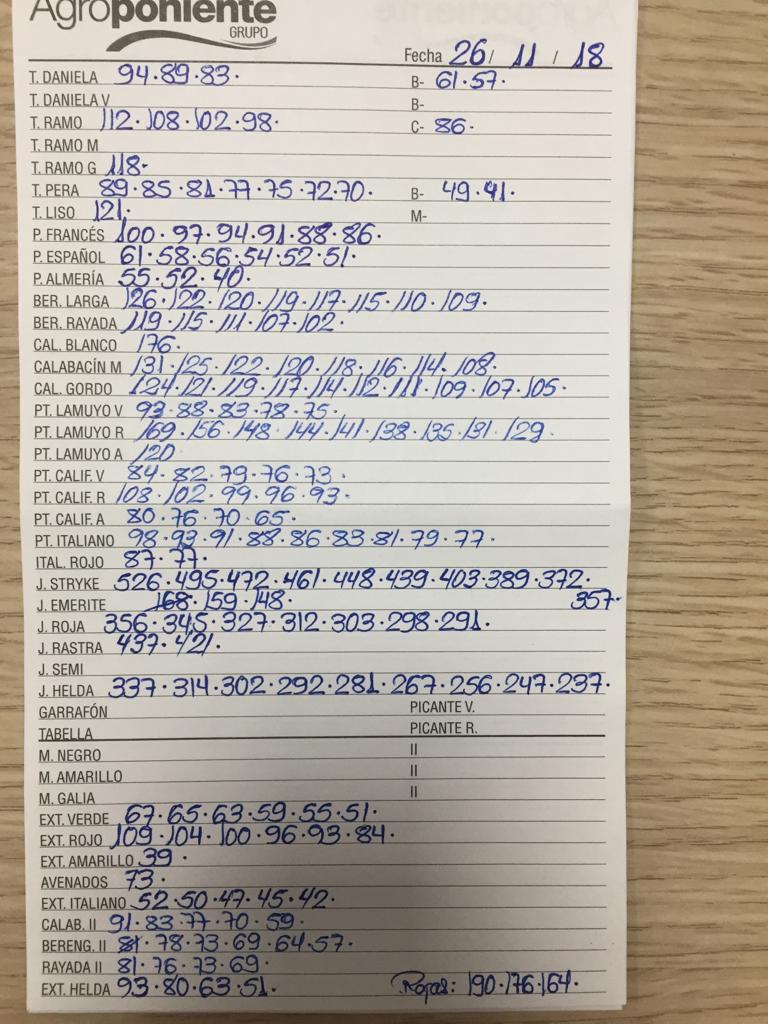 Agroponiente
GRUPO
Fecha 26/ 11 / 18
T. DANIELA 94·89·83· B- 61·57·
T. DANELA V B-
T. RAMO 112·108·102·98· C- 86·
T. RAMO M
T. RAMO G 118·
T. PERA 89·85·81·77·75·72·70· B- 49·41·
T. LISO 121· M-
P. FRANCÉS 100·97·94·91·88·86·
P. ESPAÑOL 61·58·56·54·52·51·
P. ALMERÍA 55·52·40·
BER. LARGA 126·122·120·119·117·115·110·109·
BER. RAYADA 119·115·111·107·102·
CAL. BLANCO 176·
CALABACÍN M 131·125·122·120·118·116·114·108·
CAL. GORDO 124·121·119·117·114·112·111·109·107·105·
PT. LAMUYO V 93·88·83·78·75·
PT. LAMUYO R 169·156·148·144·141·138·135·131·129·
PT. LAMUYO A 120
PT. CALIF. V 84·82·79·76·73·
PT. CALIF. R 108·102·99·96·93·
PT. CALIF. A 80·76·70·65·
PT. ITALIANO 98·93·91·88·86·83·81·79·77·
ITAL. ROJO 87·77·
J. STRYKE 526·495·472·461·448·439·403·389·372·
J. EMERITE 168·159·148· 357·
J. ROJA 356·345·327·312·303·298·291·
J. RASTRA 437·421·
J. SEMI
J. HELDA 337·314·302·292·281·267·256·247·237·
GARRAFÓN PICANTE V.
TABELLA PICANTE R.
M. NEGRO II
M. AMARILLO II
M. GALIA II
EXT. VERDE 67·65·63·59·55·51·
EXT. ROJO 109·104·100·96·93·84·
EXT. AMARILLO 39·
AVENADOS 73·
EXT. ITALIANO 52·50·47·45·42·
CALAB. II 91·83·77·70·59·
BERENG. II 81·78·73·69·64·57·
RAYADA II 81·76·73·69·
EXT. HELDA 93·80·63·51· Rojas: 190·176·164·